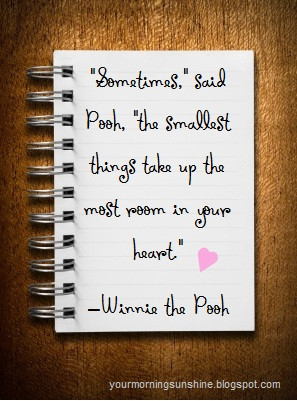 "Sometimes," said
Pooh, "the smallest
things take up the
most room in your
heart."
–Winnie the Pooh
yourmorningsunshine.blogspot.com